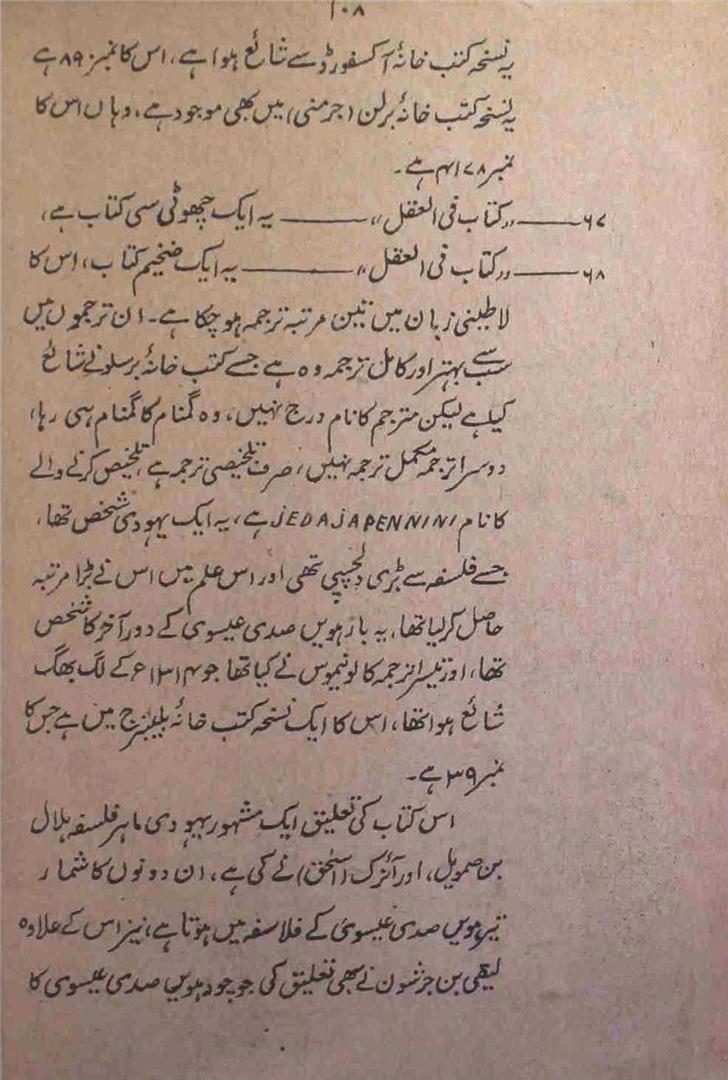 ۱۰۸
یہ نسخہ کتب خانۂ آکسفورڈ سے شائع ہوا ہے، اس کا نمبر ۸۹ ہے
یہ نسخہ کتب خانۂ برلن (جرمنی) میں بھی موجود ہے، وہاں اس کا
نمبر ۴۱۷۸ ہے۔
۶۷ــــــ ”کتاب فی العقل“، ــــــ یہ ایک چھوٹی سی کتاب ہے،
۶۸ــــــ ”کتاب فی العقل“، ــــــ یہ ایک ضخیم کتاب، اس کا
لاطینی زبان میں تین مرتبہ ترجمہ ہو چکا ہے۔ ان ترجموں میں
سب سے بہتر اور کامل ترجمہ وہ ہے جسے کتب خانۂ برسلو نے شائع
کیا ہے لیکن مترجم کا نام درج نہیں، وہ گمنام کا گمنام ہی رہا،
دوسرا ترجمہ مکمل ترجمہ نہیں، صرف تلخیصی ترجمہ ہے، تلخیص کرنے والے
کا نام JEDAJAPENNINI ہے، یہ ایک یہودی شخص تھا،
جسے فلسفہ سے بڑی دلچسپی تھی اور اس علم میں اس نے بڑا مرتبہ
حاصل کر لیا تھا، یہ بارہویں صدی عیسوی کے دور آخر کا شخص
تھا، اور تیسرا ترجمہ کالونیموس نے کیا تھا جو ۱۳۱۴ء کے لگ بھگ
شائع ہوا تھا، اس کا ایک نسخہ کتب خانۂ لیبزج میں ہے جس کا
نمبر ۳۹ ہے۔
اس کتاب کی تعلیق ایک مشہور یہودی ماہر فلسفہ ہلال
بن صمویل، اور آئزک (اسحٰق) نے کی ہے، ان دونوں کا شمار
تیرہویں صدی عیسوی کے فلاسفہ میں ہوتا ہے، نیز اس کے علاوہ
لیفی بن جرشون نے بھی تعلیق کی جو چودہویں صدی عیسوی کا